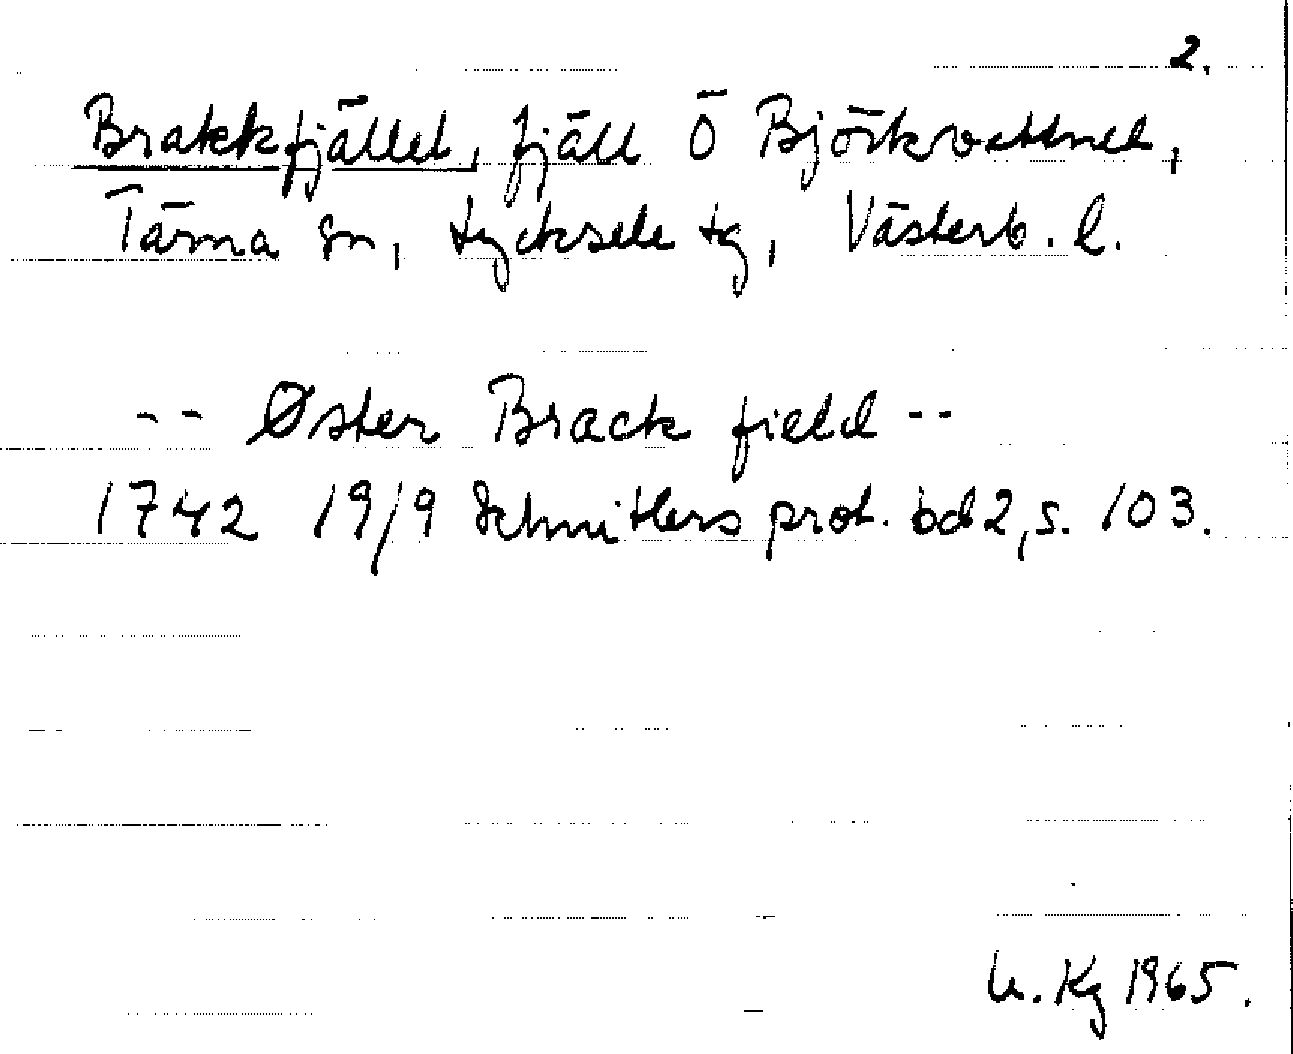 2.
Brakkfjället, fjäll Ö Björkvattnet,
Tärna sn, Lycksele tg, Västerb. l.
-- Øster Brack field --
1742 19/9 Schnitlers prot. bd 2, s. 103.
U. Kg 1965.